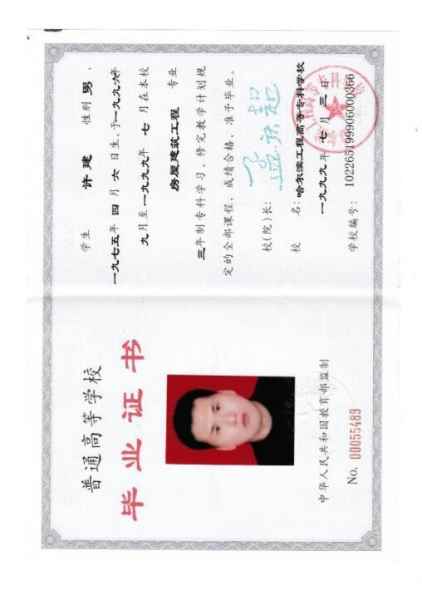 普通高等学校
毕业证书
中华人民共和国教育部监制
No. 00055489
学生 许建 性别 男，
一九七五年 四 月 六 日生，于一九九六年
九月至一九九九年 七 月在本校
房屋建筑工程 专业
三年制专科学习，修完教学计划规
定的全部课程，成绩合格，准予毕业。
校(院)长：
校 名：哈尔滨工程高等专科学校
一九九九年 七 月 三 日
学校编号：102265199906000366